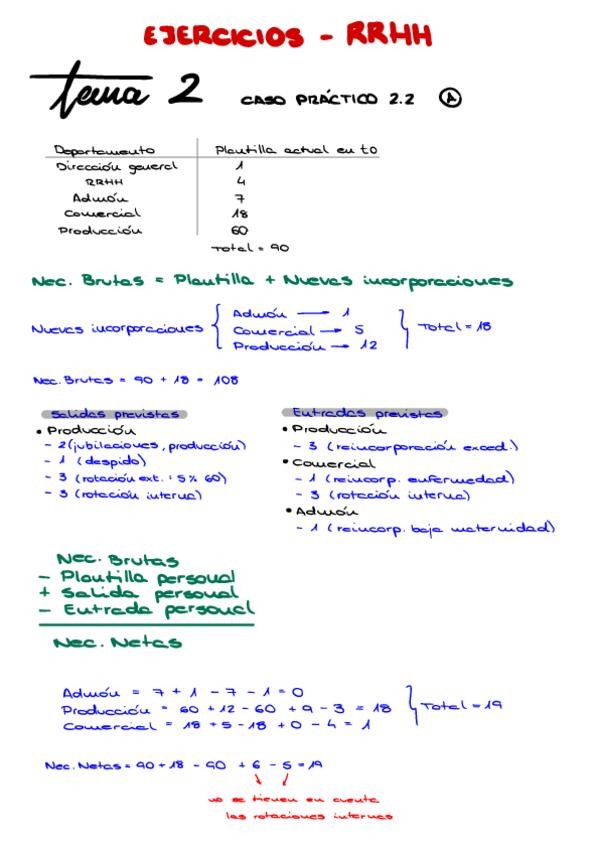 EJERCICIOS - RRHH
tema 2 CASO PRÁCTICO 2.2 A
Departamento Plantilla actual en t0
Dirección general 1
RRHH 4
Admón 7
Comercial 18
Producción 60
Total = 90
Nec. Brutas = Plantilla + Nuevas incorporaciones
Nuevas incorporaciones { Admón → 1
Comercial → 5
Producción → 12
} Total = 18
Nec. Brutas = 90 + 18 = 108
Salidas previstas
• Producción
- 2 (jubilaciones, producción)
- 1 (despido)
- 3 (rotación ext.: 5% 60)
- 3 (rotación interna)
Entradas previstas
• Producción
- 3 (reincorporación exced.)
• Comercial
- 1 (reincorp. enfermedad)
- 3 (rotación interna)
• Admón
- 1 (reincorp. baja maternidad)
Nec. Brutas
- Plantilla personal
+ Salida personal
- Entrada personal
Nec. Netas
Admón = 7 + 1 - 7 - 1 = 0
Producción = 60 + 12 - 60 + 9 - 3 = 18
Comercial = 18 + 5 - 18 + 0 - 4 = 1
} Total = 19
Nec. Netas = 90 + 18 - 90 + 6 - 5 = 19
no se tienen en cuenta
las rotaciones internas